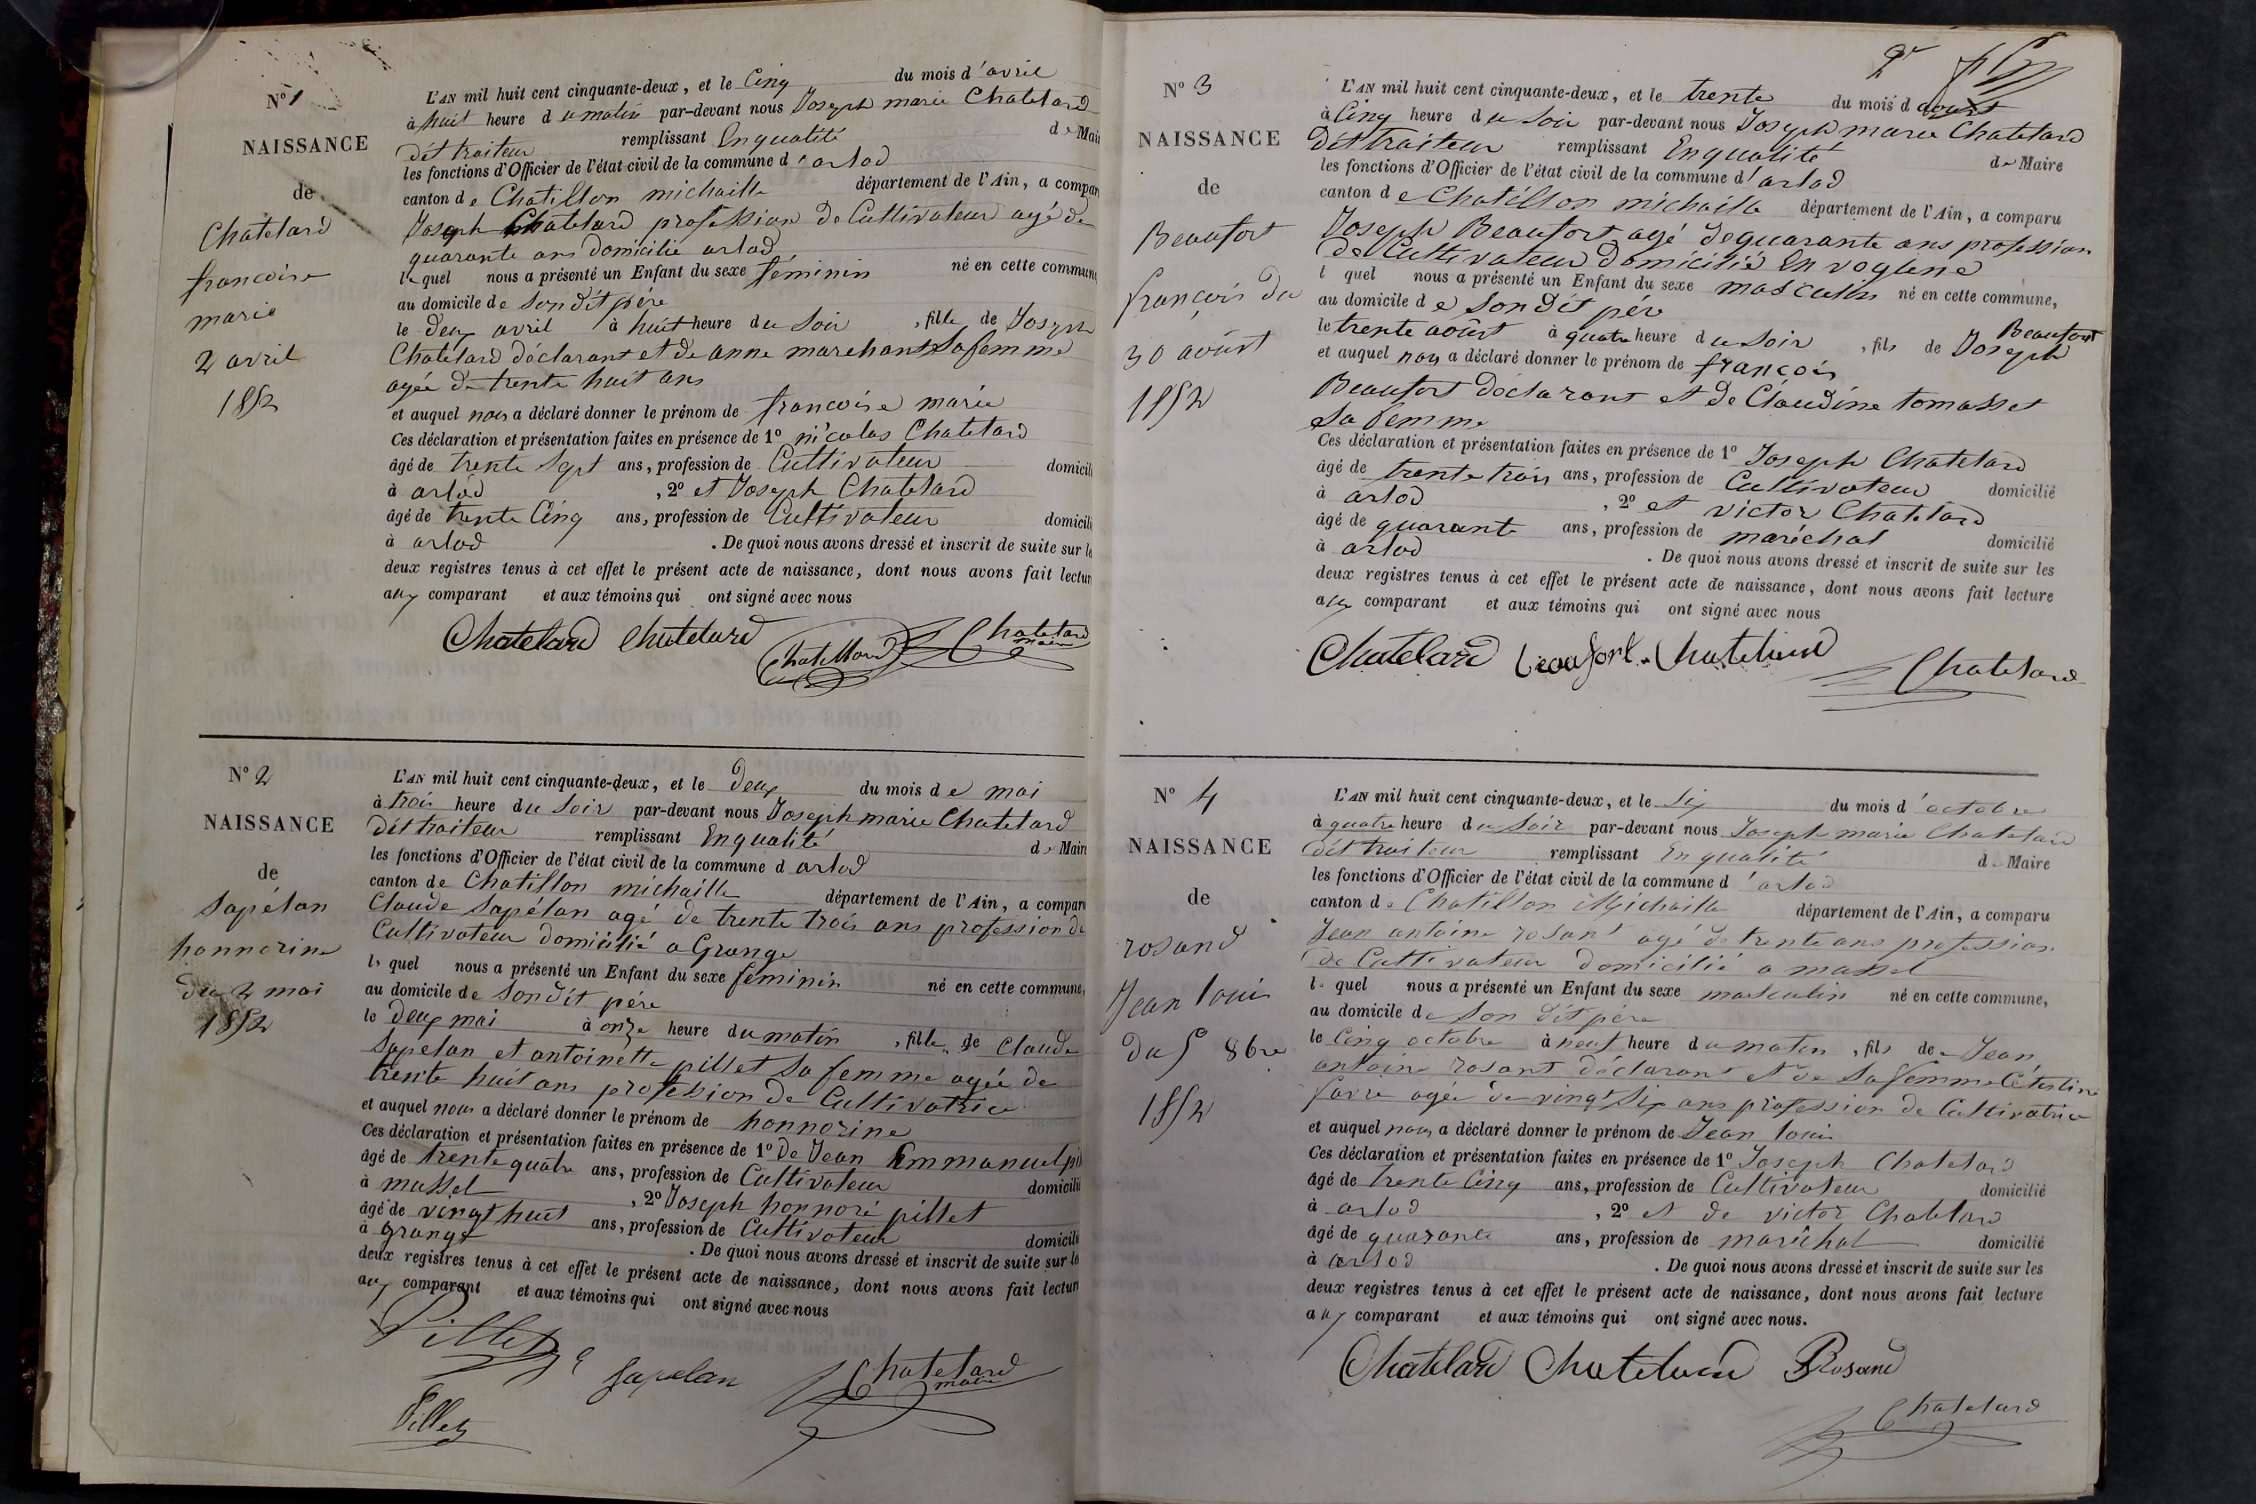 N° 1
NAISSANCE
de
Chatelard
francoise
marie
2 avril
1852
L'AN mil huit cent cinquante-deux, et le Cinq du mois d'avril
à huit heure du matin par-devant nous Joseph marie Chatelard
dét traiteur remplissant En qualité de Mair
les fonctions d'Officier de l'état civil de la commune d'arlod
canton de Chatillon michaille département de l'Ain, a compar
Joseph Chatelard profession de Cultivateur agé de
quarante ans domicilié arlod
lequel nous a présenté un Enfant du sexe féminin né en cette commune
au domicile de son dit pére
le deux avril à huit heure du soir, fille de Joseph
Chatelard déclarant et de anne marchant sa femme
agée de trente huit ans
et auquel nous a déclaré donner le prénom de francoise marie
Ces déclaration et présentation faites en présence de 1° nicolas Chatelard
âgé de trente sept ans, profession de Cultivateur domicili
à arlod, 2° et Joseph Chatelard
âgé de trente Cinq ans, profession de Cultivateur domicili
à arlod. De quoi nous avons dressé et inscrit de suite sur le
deux registres tenus à cet effet le présent acte de naissance, dont nous avons fait lectur
aux comparant et aux témoins qui ont signé avec nous
Chatelard Chatelard Chatellard Chatelard
maire
N° 2
NAISSANCE
de
Sapélan
honnorine
du 2 mai
1852
L'AN mil huit cent cinquante-deux, et le deux du mois de mai
à trois heure du soir par-devant nous Joseph marie Chatelard
dét traiteur remplissant En qualité de Maire
les fonctions d'Officier de l'état civil de la commune d arlod
canton de Chatillon michaille département de l'Ain, a compar
Claude Sapélan agé de trente trois ans profession de
Cultivateur domicilié a Grange
lequel nous a présenté un Enfant du sexe féminin né en cette commune,
au domicile de son dit pére
le deux mai à onze heure du matin, fille de Claude
Sapelan et antoinette pillet sa femme agée de
trente huit ans profession de Cultivatrice
et auquel nous a déclaré donner le prénom de honnorine
Ces déclaration et présentation faites en présence de 1° de Jean Emmanuel pil
âgé de trente quatre ans, profession de Cultivateur domicilié
à mussel, 2° Joseph honnoré pillet
âgé de vingt huit ans, profession de Cultivateur domicilié
à grange. De quoi nous avons dressé et inscrit de suite sur le
deux registres tenus à cet effet le présent acte de naissance, dont nous avons fait lectur
aux comparant et aux témoins qui ont signé avec nous
Pillet Sapelan Chatelard
maire
Pillet
2e
N° 3
NAISSANCE
de
Beaufort
françois du
30 août
1852
L'AN mil huit cent cinquante-deux, et le trente du mois d août
à Cinq heure du soir par-devant nous Joseph marie Chatelard
dét traiteur remplissant En qualité de Maire
les fonctions d'Officier de l'état civil de la commune d'arlod
canton de Chatillon michaille département de l'Ain, a comparu
Joseph Beaufort agé de quarante ans profession
de Cultivateur domicilié En
l quel nous a présenté un Enfant du sexe masculin né en cette commune,
au domicile de son dit pére
le trente août à quatre heure du soir, fils de Joseph Beaufort
et auquel nous a déclaré donner le prénom de françois
Beaufort déclarant et de Claudine tomasset
sa femme
Ces déclaration et présentation faites en présence de 1° Joseph Chatelard
âgé de trente trois ans, profession de Cultivateur domicilié
à arlod, 2° et victor Chatelard
âgé de quarante ans, profession de maréchal domicilié
à arlod. De quoi nous avons dressé et inscrit de suite sur les
deux registres tenus à cet effet le présent acte de naissance, dont nous avons fait lecture
aux comparant et aux témoins qui ont signé avec nous
Chatelard Beaufort Chatelard Chatelard
N° 4
NAISSANCE
de
rosand
Jean louis
du 5 8bre
1852
L'AN mil huit cent cinquante-deux, et le six du mois d'octobre
à quatre heure du soir par-devant nous Joseph marie Chatelard
dét traiteur remplissant En qualité de Maire
les fonctions d'Officier de l'état civil de la commune d'arlod
canton de Chatillon Michaille département de l'Ain, a comparu
Jean antoine rosant agé de trente ans profession
de Cultivateur domicilié a mussel
lequel nous a présenté un Enfant du sexe masculin né en cette commune,
au domicile de son dit pére
le Cinq octobre à neuf heure du matin, fils de Jean
antoine rosant déclarant et de sa femme Célestine
favre agée de vingt six ans profession de Cultivatrice
et auquel nous a déclaré donner le prénom de Jean louis
Ces déclaration et présentation faites en présence de 1° Joseph Chatelard
âgé de trente Cinq ans, profession de Cultivateur domicilié
à arlod, 2° et de victor Chatelard
âgé de quarante ans, profession de maréchal domicilié
à arlod. De quoi nous avons dressé et inscrit de suite sur les
deux registres tenus à cet effet le présent acte de naissance, dont nous avons fait lecture
aux comparant et aux témoins qui ont signé avec nous.
Chatelard Chatelard Rosand
Chatelard